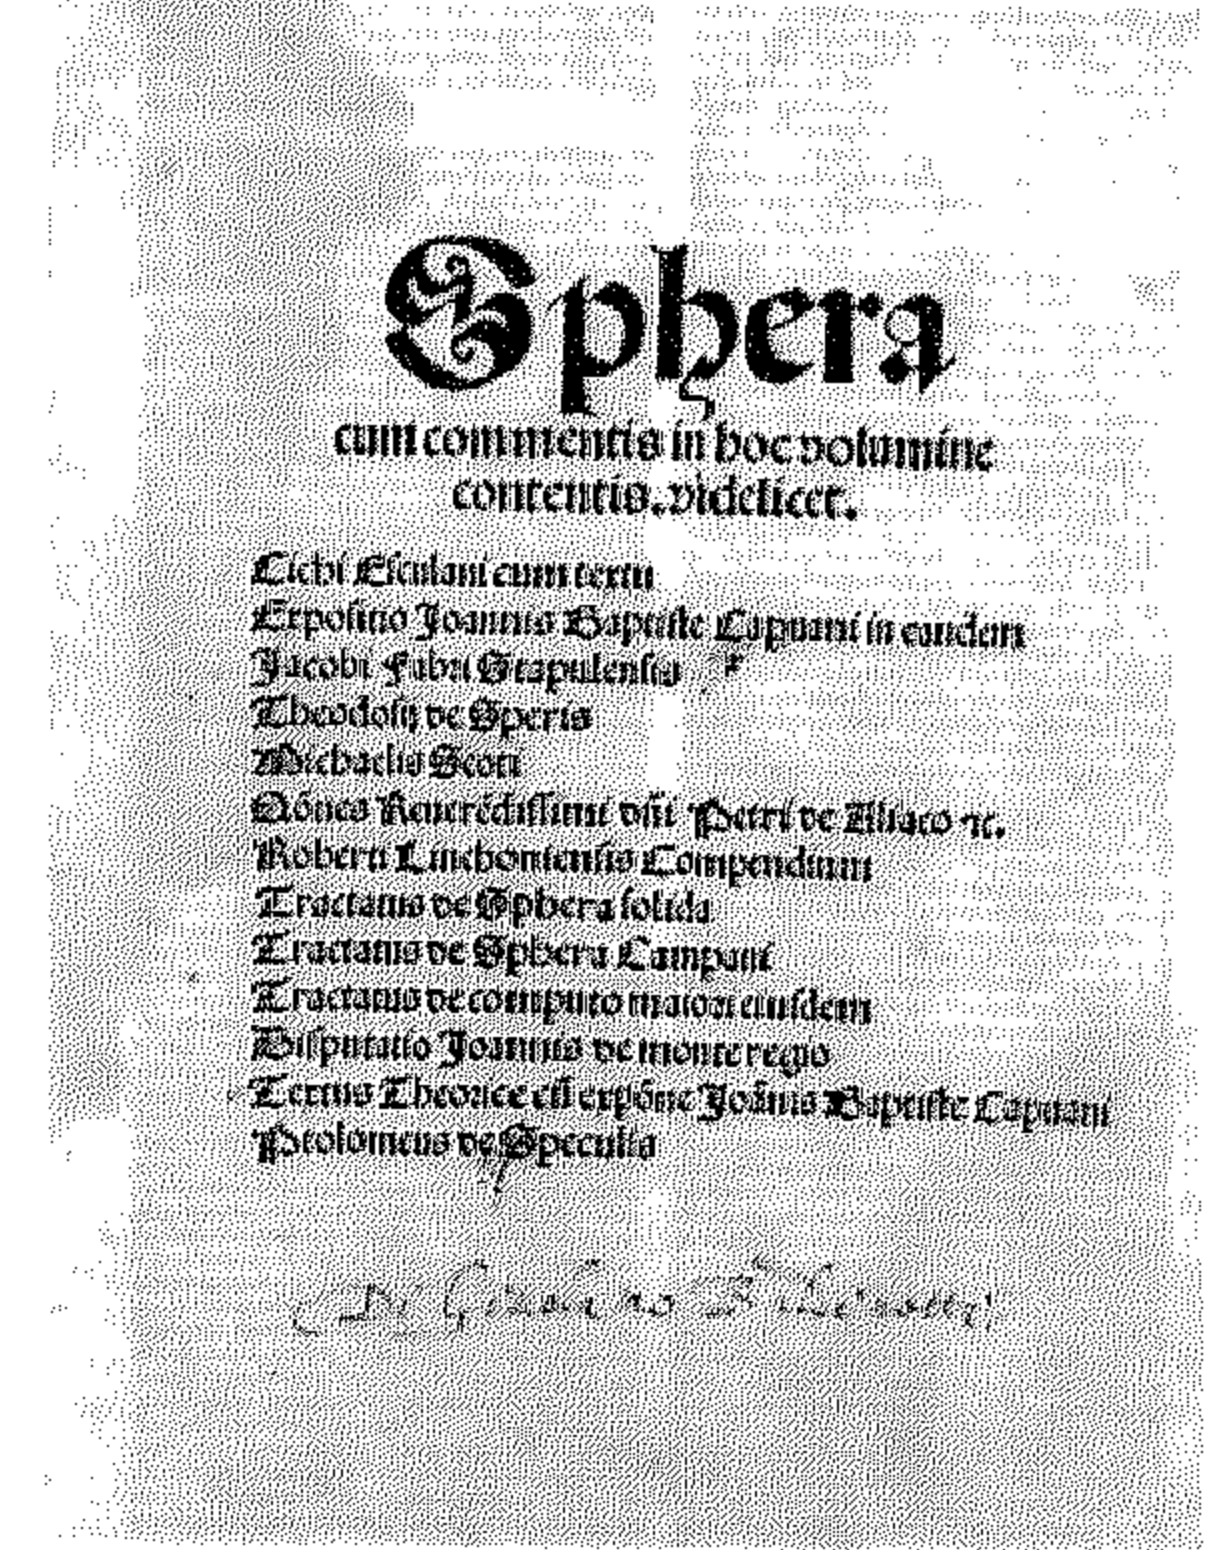 Sphera
cum commentis in hoc volumine
contentis. videlicet.
Cichi Esculani cum textu
Expositio Joannis Baptiste Capuani in eandem
Jacobi Fabri Stapulensis
Theodosij de Speris
Michaelis Scoti
Qōnes Reuerēdissimi dñi Petri de Aliaco ⁊c.
Roberti Linchoniensis Compendium
Tractatus de Sphera solida
Tractatus de Sphera Campani
Tractatus de computo maiori eiusdem
Disputatio Joannis de monte regio
Textus Theorice cū expōne Joānis Baptiste Capuani
Ptolomeus de Speculis